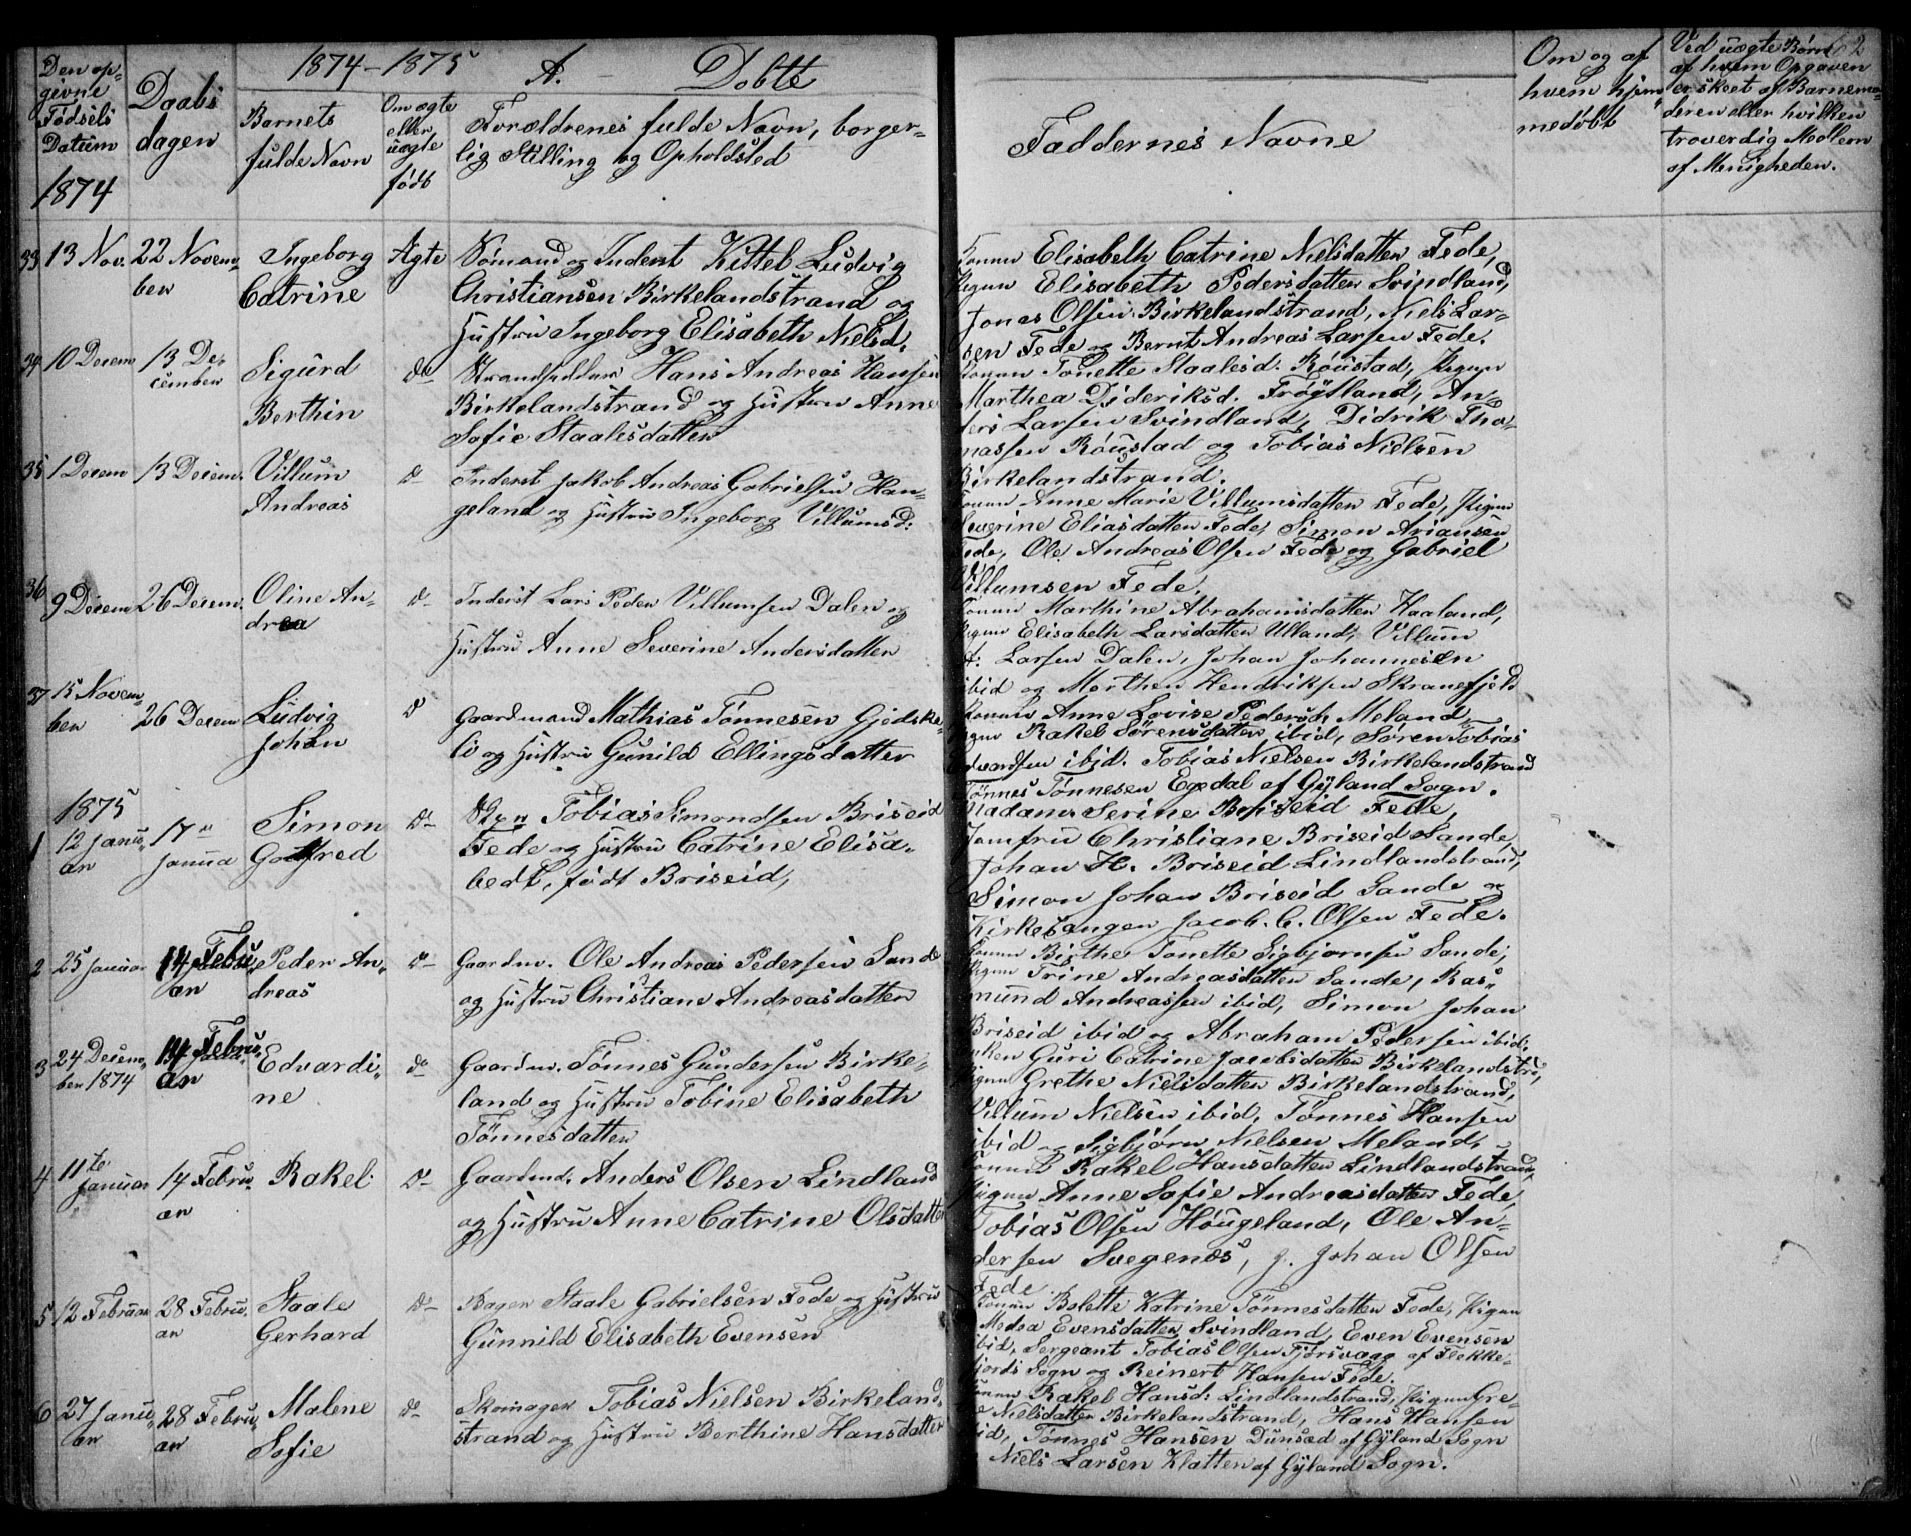 1874 – 1875 A. – Døbte
Den op-
givne
Fødsels
Datum
1874
Daabs
dagen
Barnets
fulde Navn
Om ægte
eller
uægte
født
Forældrenes fulde Navn, borger-
lig Stilling og Opholdsted
Faddernes Navne
Om og af
hvem hjem
medøbt
Ved uægte Børn
af hvem Opgaven
er skeet af Barnemo-
deren eller hvilken
troverdig Medlem
af Menigheden.
2
33 13 Nov. 22 Novem-
ber
Ingeborg
Catrine
Ægte
Sømand og Inderst Kittel Ludvig
Christiansen Birkelandstrand og
Hustru Ingeborg Elisabeth Nielsd.
Konen Elisabeth Catrine Nielsdatter Fede,
Pigen Elisabeth Pedersdatter Svindland,
Jonas Olsen Birkelandstrand, Niels Lar-
sen Fede og Bernt Andreas Larsen Fede.
34 10 Decem 13 De-
cember
Sigurd
Berthin
Do
Strandsidder Hans Andreas Hansen
Birkelandstrand og Hustru Anne
Sofie Staalesdatter
Konen Tonette Staalesd. Røustad, Pigen
Marthea Dideriksd. Frøytland, An-
ders Larsen Svindland, Didrik Tho-
massen Røustad og Tobias Nielsen
Birkelandstrand.
35 1 Decem 13 Decem.
Villum
Andreas
do
Inderst Jakob Andreas Gabrielsen Han-
geland og Hustru Ingeborg Villumsd:
Konen Anne Marie Villumsdatter Fede, Pigen
Severine Eliasdatter Fede, Simon Ariansen
Fede, Ole Andreas Olsen Fede og Gabriel
Villumsen Fede.
36 9 Decem 26 Decem.
Oline An-
drea
do
Inderst Lars Peder Villumsen Dalen og
Hustru Anne Severine Andersdatter
Konen Marthine Abrahamsdatter Haaland,
Pigen Elisabeth Larsdatter Ulland, Villum
Larsen Dalen, Johan Johannesen
ibid og Morthen Hendriksen Skranefjeld
37 15 Novem-
ber
26 Decem
Ludvig
Johan
do
Gaardmand Mathias Tønnesen Gjedske-
li og Hustru Gunild Ellingsdatter
Konen Anne Lovise Pedersd. Meland,
Pigen Rakel Sørensdatter ibid, Søren Tobias
Edvardsen ibid. Tobias Nielsen Birkelandstrand
Tønnes Tønnesen Egedal af Gyland Sogn.
1875
1 12 Janu-
ar
17
Janua
Simon
Gotfred
Do
Tobias Simondsen Briseid
Fede og Hustru Catrine Elisa-
bedt, født Briseid,
Madam Serine Briseid Fede,
Jomfru Christiane Briseid Sande,
Johan H. Briseid Lindlandstrand,
Simon Johan Briseid Sande og
Kirkesanger Jacob. C. Olsen Fede.
2 25 Januar 14 Febru
ar
Peder An-
dreas
do
Gaardm. Ole Andreas Pedersen Sande
og Hustru Christiane Andreasdatter
Konen Birthe Tonette Sigbjørnsen Sande,
Pigen Trine Andreasdatter Sande, Ras-
mund Andreassen ibid, Simon Johan
Briseid ibid og Abraham Pedersen ibid:
3 24 Decem-
ber 1874
14 Febru-
ar
Edvardi-
ne
do
Gaardm. Tønnes Gundersen Birke-
land og Hustru Tobine Elisabeth
Tønnesdatter
Enken Guri Catrine Jacobsdatter Birkelandstr,
Pigen Grethe Nielsdatter Birkelandstrand,
Villum Nielsen ibid, Tønnes Hansen
ibid og Sigbjørn Nielsen Meland.
4 11te
Januar
14 Febru-
ar
Rakel.
do
Gaardmd. Anders Olsen Lindland
og Hustru Anne Catrine Olsdatter
Konen Rakel Hansdatter Lindlandstrand,
Pigen Anne Sofie Andreasdatter Fede,
Tobias Olsen Høugeland, Ole An-
dersen Svegenæs, J. Johan Olsen
Fede
5 12 Februar 28 Febru-
ar
Staale
Gerhard
do
Bager Staale Gabrielsen Fede og Hustru
Gunnild Elisabeth Evensen
Konen Bolette Katrine Tønnesdatter Fede, Pigen
Medea Evensdatter Svindland, Even Evensen
ibid, Sergeant Tobias Olsen Tjorsvaag af Flekke-
fjords Sogn og Reinert Hansen Fede.
6 27 Janu-
ar
28 Febru-
ar
Malene
Sofie
do
Skomager Tobias Nielsen Birkeland-
strand og Hustru Berthine Hansdatter
Konen Rakel Hansd: Lindlandstrand, Pigen Gre-
Nielsdatter Birkelandstrand, Hans Hansen
ibid, Tønnes Hansen Dunsæd af Gyland Sogn
Niels Larsen Klatten af Gyland Sogn.